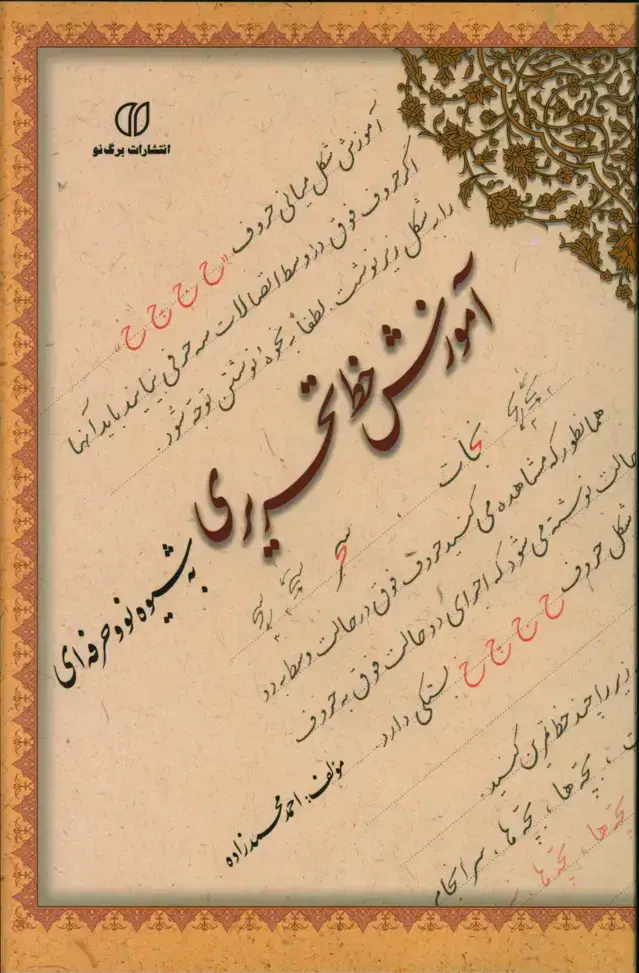 انتشارات برگ نو
آموزش شکل میانی حروف «ح ج چ خ»
اگر حروف فوق در وسط اتصالات سه حرفی بیایند باید آنها
را به شکل زیر نوشت. لطفاً به نحوه نوشتن توجه شود.
آموزش خط تحریری
به شیوه نو و حرفه‌ای
نجات
سحر
همانطور که مشاهده می کنید حروف فوق در حالت وسط به دو
حالت نوشته می شود که اجرای دو حالت فوق به حروف
شکل حروف ح ج چ خ بستگی دارد.
زیر را چند خط تمرین کنید.
بچه ها، بچه ها، سرانجام
بچه ها، بچه ها،
مؤلف: احمد محمدزاده